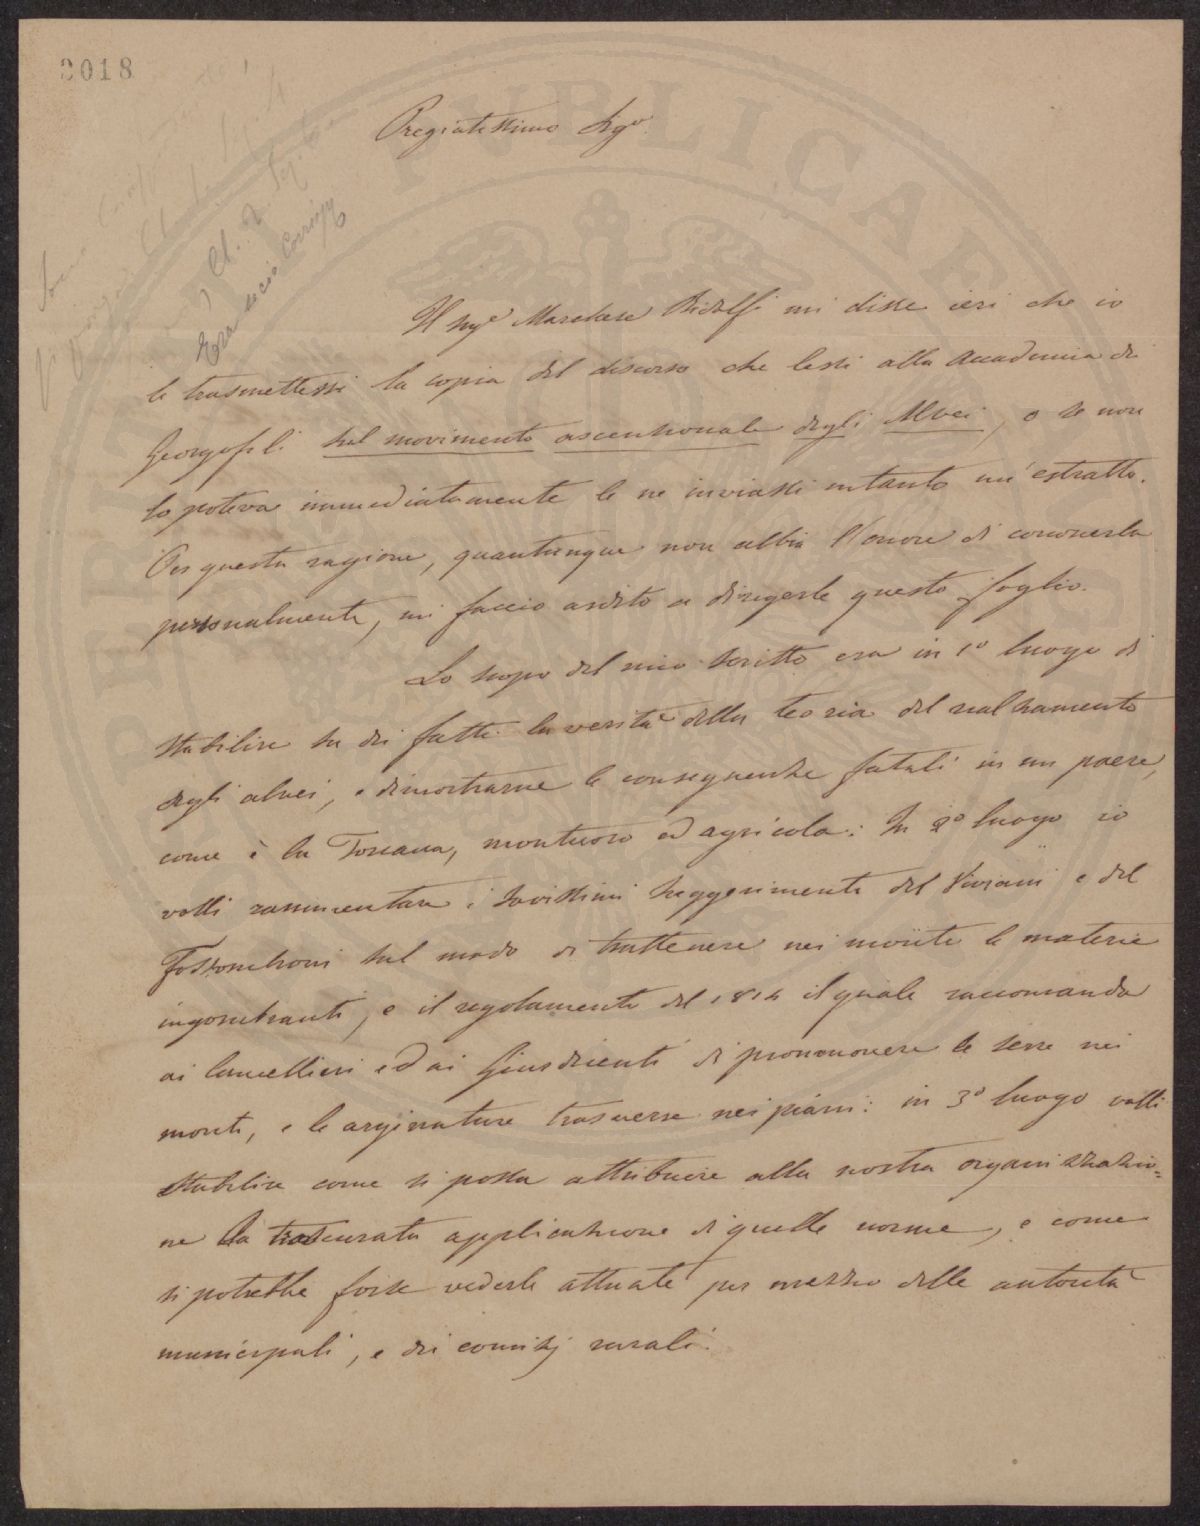 3018
Pregiatissimo Sigr.
Cl. 2. Sez.
Era socio Corrisp
Il Sigr Marchese Ridolfi mi disse ieri che io
le trasmettessi la copia del discorso che lessi alla Accademia dei
Georgofili sul movimento ascensionale degli Alvei, o se non
lo poteva immediatamente le ne inviassi intanto un'estratto.
Per questa ragione, quantunque non abbia l'onore di conoscerla
personalmente, mi faccio ardito a dirigerle questo foglio.
Lo scopo del mio scritto era in 1o luogo di
stabilire su dei fatti la verità della teoria del rialzamento
degli alvei, e dimostrarne le conseguenze fatali in un paese,
come è la Toscana, montuoso ed agricola: In 2o luogo io
volli rammentare i savissimi suggerimenti del Viviani e del
Fossombroni sul modo di trattenere nei monti le materie
ingombranti, e il regolamento del 1814 il quale raccomanda
ai Cancellieri ed ai Giusdicenti di promuovere le serre nei
monti, e le arginature trasverse nei piani: in 3o luogo volli
stabilire come si possa attribuire alla nostra organizzazio=
ne la trascurata applicazione di quelle norme, e come
si potrebbe forse vederle attuate per mezzo delle autorità
municipali, e dei comizj rurali.